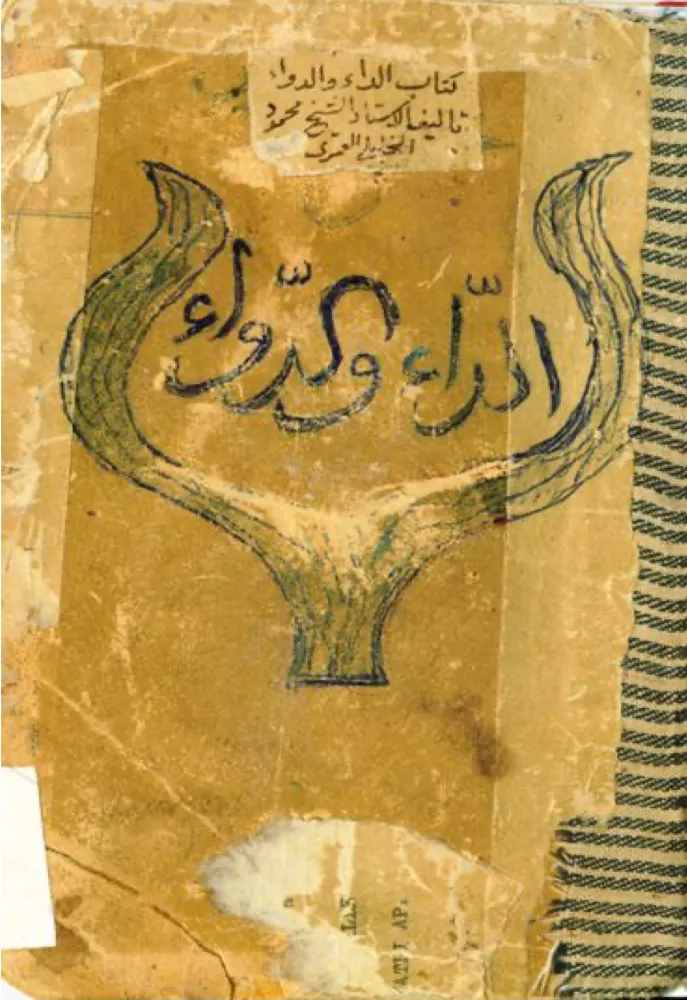 كتاب الداء والدواء
تاليف الاستاذ الشيخ محمود
العمرى
الدّاء والدّواء
ATLI AP.